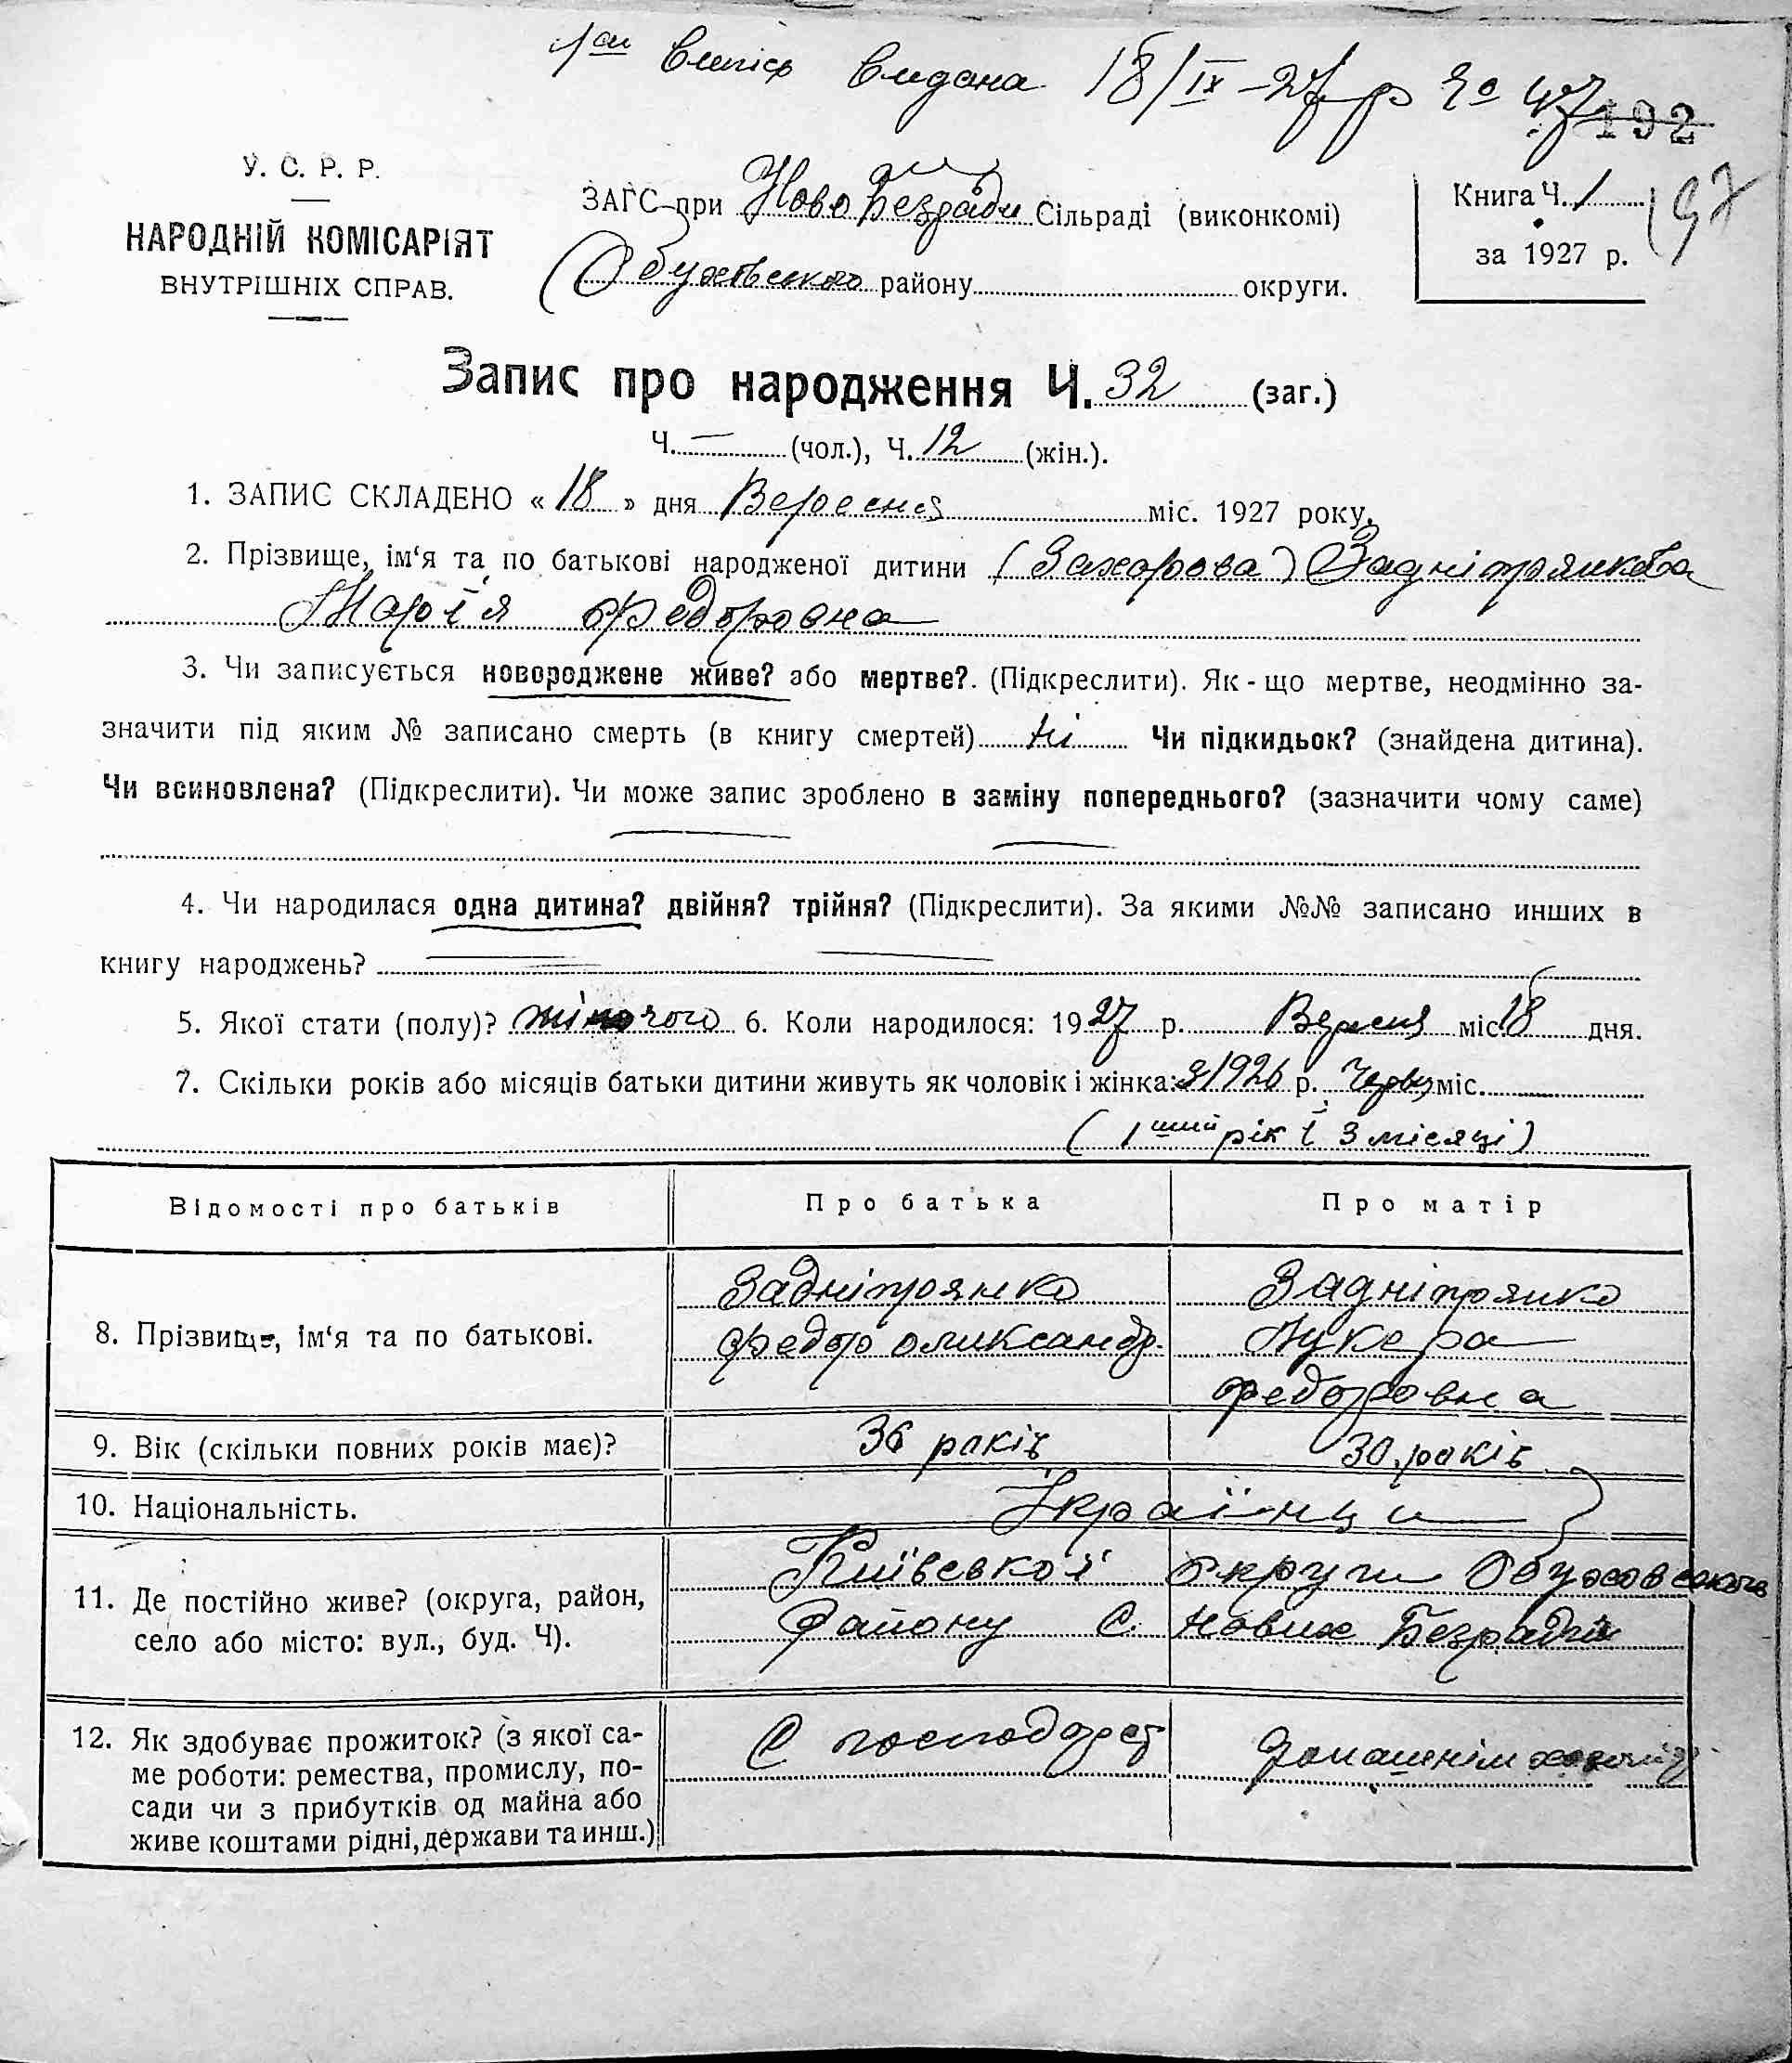 випись видана 18/IX-27 р № 47
192
У. С. Р. Р.
НАРОДНІЙ КОМІСАРІЯТ
ВНУТРІШНІХ СПРАВ.
ЗАГС при Ново Безрадич Сільраді (виконкомі)
Обухівського району округи.
Книга Ч. 1
за 1927 р.
197
Запис про народження Ч. 32 (заг.)
Ч. — (чол.), Ч. 12 (жін.).
1. ЗАПИС СКЛАДЕНО « 18 » дня Вересня міс. 1927 року.
2. Прізвище, ім‘я та по батькові народженої дитини (Захарова) Задніпрянкова
Марія Федоровна
3. Чи записується новороджене живе? або мертве?. (Підкреслити). Як-що мертве, неодмінно за-
значити під яким № записано смерть (в книгу смертей) ні Чи підкидьок? (знайдена дитина).
Чи всиновлена? (Підкреслити). Чи може запис зроблено в заміну попереднього? (зазначити чому саме)
4. Чи народилася одна дитина? двійня? трійня? (Підкреслити). За якими №№ записано инших в
книгу народжень?
5. Якої стати (полу)? жіночого 6. Коли народилося: 1927 р. Вересня міс. 18 дня.
7. Скільки років або місяців батьки дитини живуть як чоловік і жінка: з 1926 р. Червц міс.
(1ший рік і 3 місяці)
Відомості про батьків Про батька Про матір
8. Прізвище, ім‘я та по батькові.
Задніпрянко Задніпрянко
Федор Олександр. Лукера
Федоровна
9. Вік (скільки повних років має)? 36 років 30 років
10. Національність. Українци
11. Де постійно живе? (округа, район,
село або місто: вул., буд. Ч).
Київської округи Обуховського
Району С. Нових Безрадич
12. Як здобуває прожиток? (з якої са-
ме роботи: ремества, промислу, по-
сади чи з прибутків од майна або
живе коштами рідні, держави та инш.)
С господарст домашнім